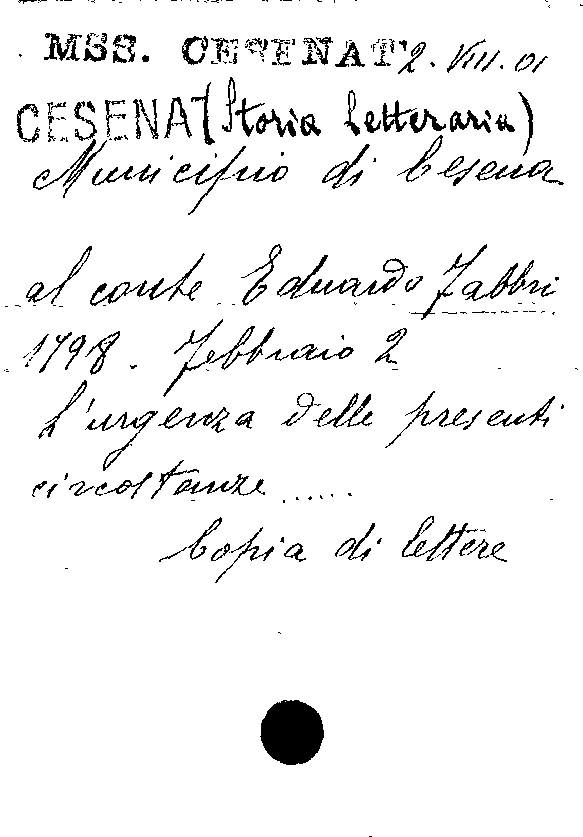 MSS. CESENAT 2. VIII. 01
CESENA (Storia Letteraria)
Municipio di Cesena
al conte Eduardo Fabbri
1798. Febbraio 2
L'urgenza delle presenti
circostanze ......
Copia di lettere